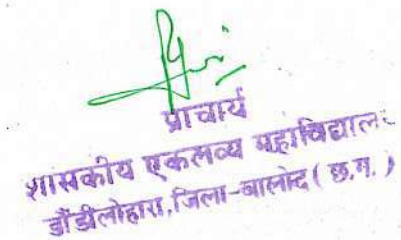 प्राचार्य
शासकीय एकलव्य महाविद्यालय
डौंडीलोहारा, जिला-बालोद ( छ.ग. )